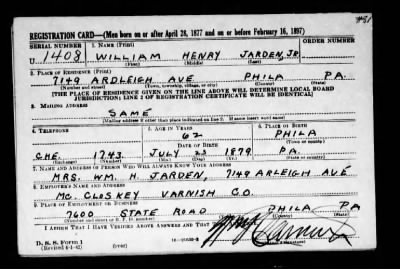 REGISTRATION CARD—(Men born on or after April 28, 1877 and on or before February 16, 1897)
SERIAL NUMBER 1. NAME (Print) ORDER NUMBER
U 1408 WILLIAM HENRY JARDEN, JR.
(First) (Middle) (Last)
2. PLACE OF RESIDENCE (Print)
7149 ARDLEIGH AVE PHILA PA.
(Number and street) (Town, township, village, or city) (County) (State)
[THE PLACE OF RESIDENCE GIVEN ON THE LINE ABOVE WILL DETERMINE LOCAL BOARD
JURISDICTION; LINE 2 OF REGISTRATION CERTIFICATE WILL BE IDENTICAL]
3. MAILING ADDRESS
SAME
[Mailing address if other than place indicated on line 2. If same insert word same]
4. TELEPHONE 5. AGE IN YEARS 6. PLACE OF BIRTH
62 PHILA
DATE OF BIRTH (Town or county)
CHE. 1743 JULY 23 1879 PA.
(Exchange) (Number) (Mo.) (Day) (Yr.) (State or country)
7. NAME AND ADDRESS OF PERSON WHO WILL ALWAYS KNOW YOUR ADDRESS
MRS. WM. H. JARDEN, 7149 ARLEIGH AVE
8. EMPLOYER'S NAME AND ADDRESS
MC. CLOSKEY VARNISH CO.
9. PLACE OF EMPLOYMENT OR BUSINESS
7600 STATE ROAD PHILA PA
(Number and street or R. F. D. number) (Town) (County) (State)
I AFFIRM THAT I HAVE VERIFIED ABOVE ANSWERS AND THAT THEY ARE TRUE.
D. S. S. Form 1
(Revised 4-1-42) (over)